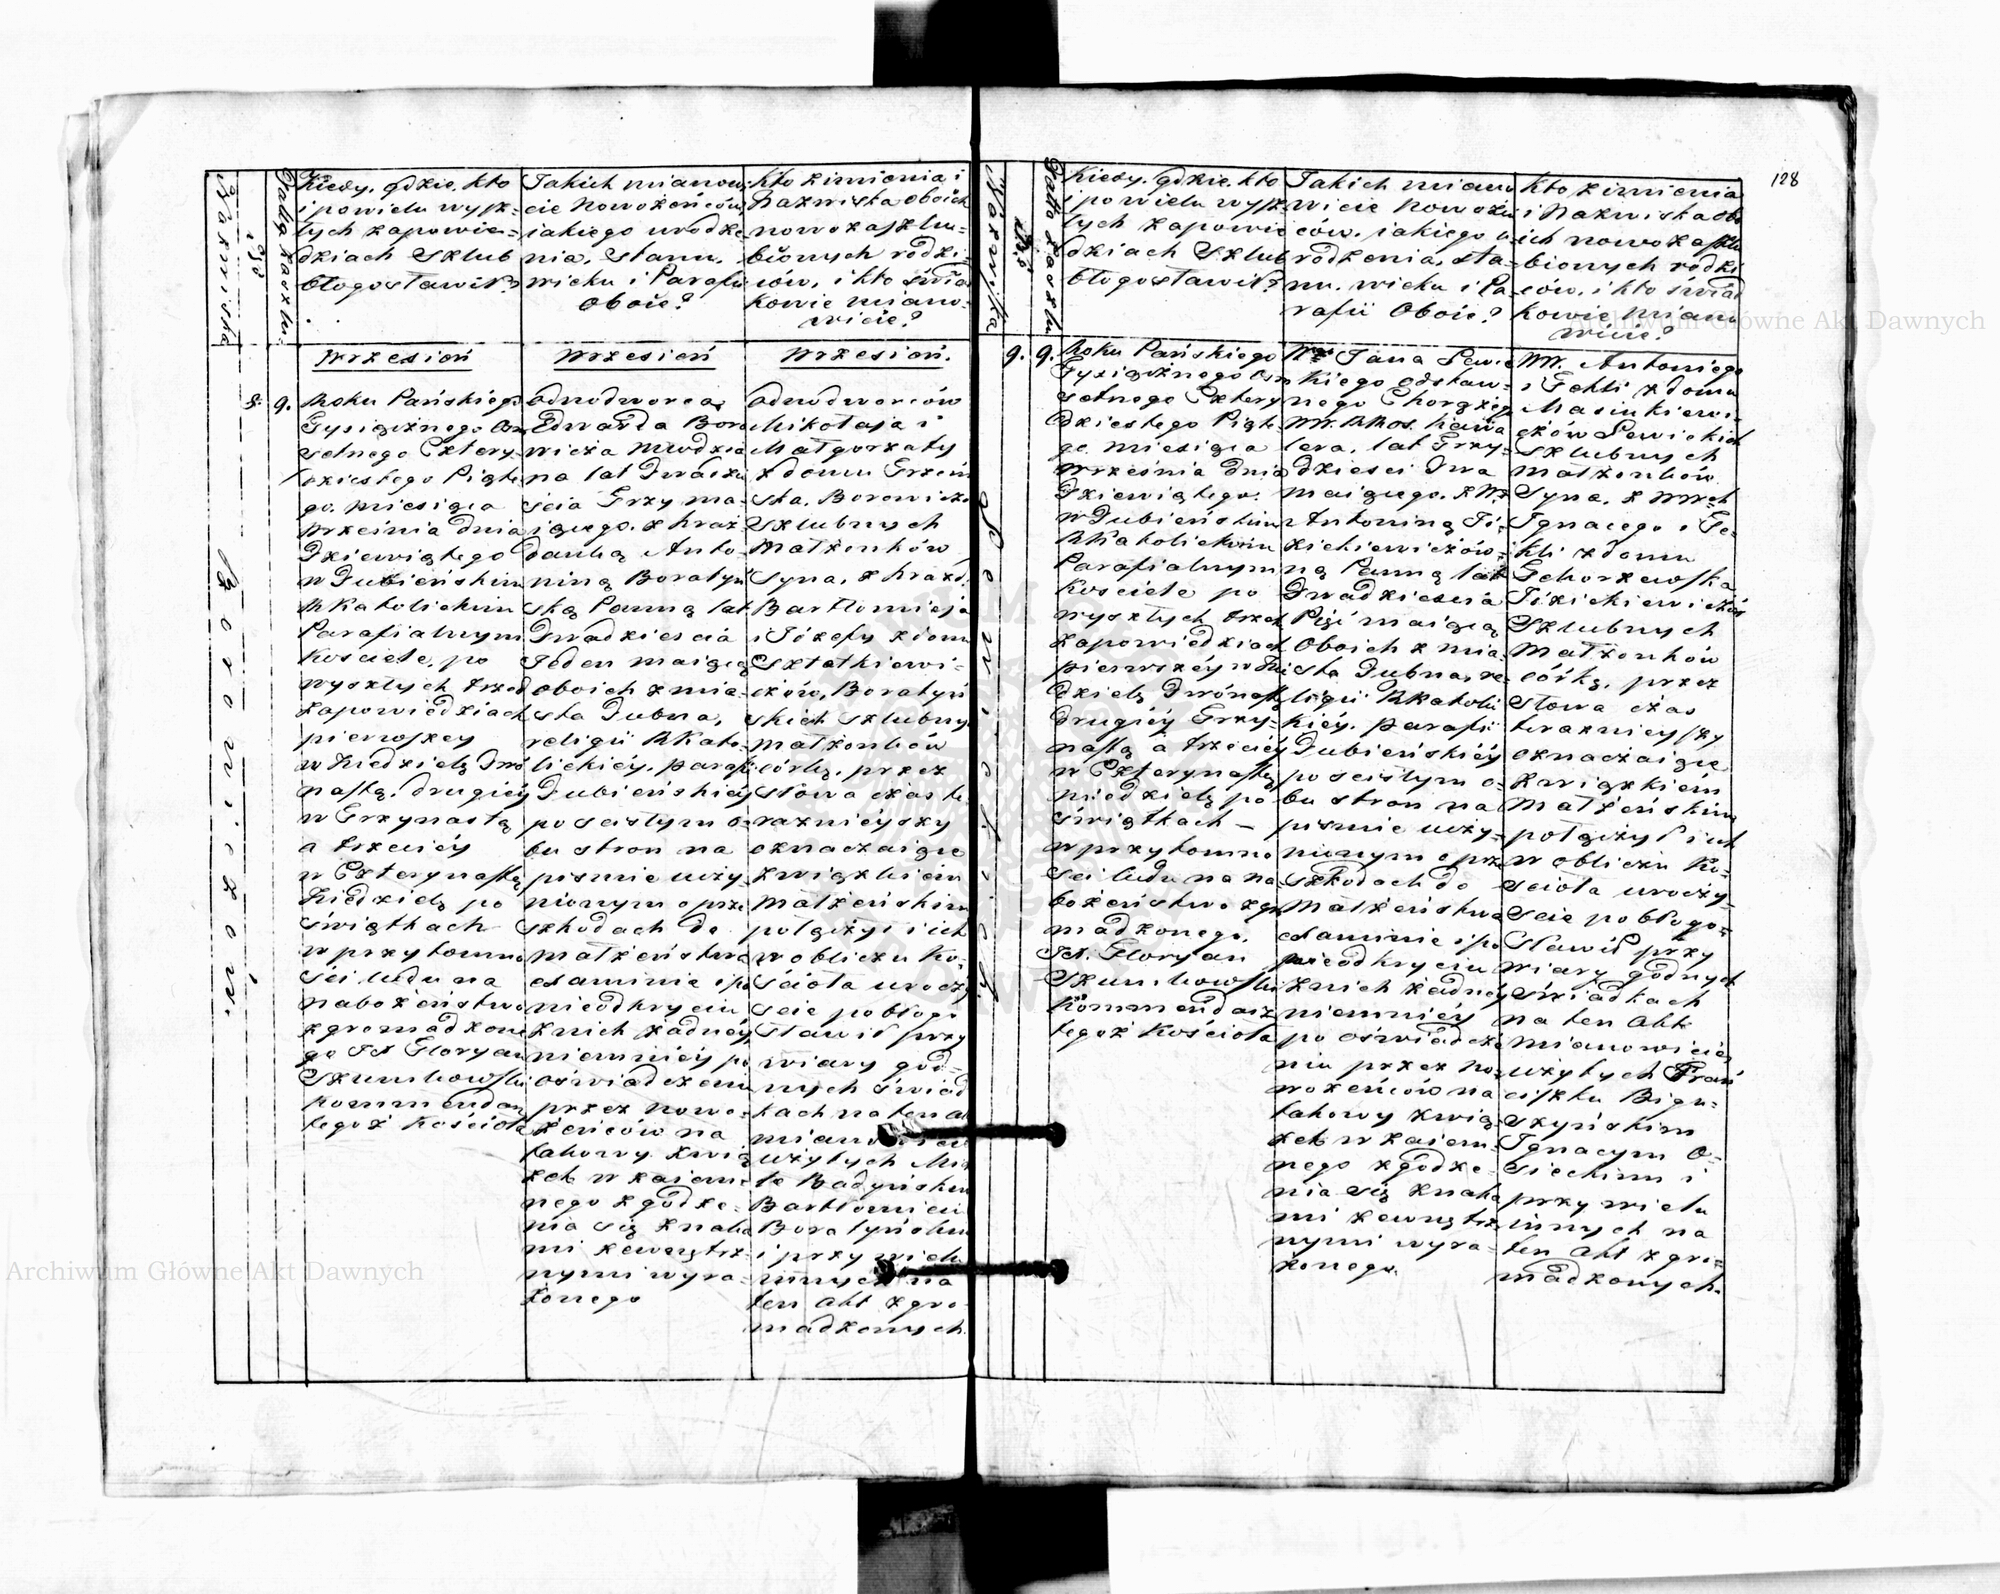 128
Nazwiska
Data zaszlu:
Kiedy, gdzie, kto
i powielu wysz-
łych zapowie-
dziach Szlub
błogosławił?
Jakich mianowi-
cie Nowożeńców
jakiego urodze
nia, Stanu,
wieku i Parafii
Oboie?
Kto z imienia i
Nazwiska oboich
nowozaszlu-
bionych rodzi-
ców, i kto świad
kowie miano-
wicie?
Wrzesień
Wrzesień
Wrzesień.
8.
9.
Borowiczów.
Roku Pańskiego
Tysiącznego Osm
setnego Cztery
dziestego Piąte
go, miesiąca
Września dnia
Dziewiątego
w Dubieńskim
RKatolickim
Parafialnym
Kościele, po
wyszłych trzech
zapowiedziach
pierwszey
w Niedzielę Dwó
nastą, drugiéy
w Trzynastą
a trzeciéy
w Czternastą
Niedzielę po
Świątkach
w przytomno
ści ludu na
nabożeństwo
zgromadzone
go Jx Floryan
Szumkowski
Kommendarz
tegoż Kościoła
Odnodworca
Edwarda Boro
wicza Młodzia
na lat Dwadzie
ścia Trzy ma-
jącego, z hraż-
danką Anto-
niną Boratyń
ską Panną lat
Dwadzieścia
Jeden maiącą
oboich z mia-
sta Dubna,
religii RKato-
lickiéy, parafii
Dubieńskiéy
po ścisłym o-
bu stron na
piśmie uczy-
nionym o prze
szkodach do
Małżeństwa
examinie i po
nieodkryciu
z nich żadnéy,
niemniéy po
oświadczeniu
przez nowo-
żeńców na
takowy zwią
zek wzaiem-
nego zgodze-
nia się znaka
mi zewnętrz-
nymi wyra-
żonego
Odnodworców
Mikołaja i
Małgorzaty
z domu Grzein
sta. Borowiczów
Szlubnych
Małżonków
Syna, z hrażd.
Bartłomieja
i Józefy z domu
Sztatkiewi-
czów, Boratyń
skich szlubnych
małżonków
córką, przez
Słowa czas te-
razniéyszy
oznaczaiące
związkiem
Małżeńskim
połączył i ich
w obliczu Ko-
ścioła uroczy
ście pobłogo
sławił przy
wiary god-
nych świad
kach na ten akt
mianowicie
użytych
Badyńskim
Bartłomieiu
Boratyńskim
i przy wielu
innych na
ten akt zgro-
madzonych.
Nazwiska
Data zaszlu
Kiedy, gdzie, kto
i powielu wysz-
łych zapowie
dziach Szlub
błogosławił?
Jakich miano
wicie Nowożeń
ców, jakiego u-
rodzenia, sta-
nu, wieku i Pa-
rafii Oboie?
Kto z imienia
i Nazwiska obo
ich nowozaszlu
bionych rodzi
ców, i kto świad
kowie miano
wicie?
9.
9.
Lewickich.
Roku Pańskiego
Tysiącznego Osm
setnego Cztery
dziestego Piąte
go miesiąca
Września dnia
Dziewiątego
w Dubieńskim
RKatolickim
Parafialnym
Kościele po
wyszłych trzech
zapowiedziach
pierwszéy w Nie
dzielę Dwónastą
drugiéy Trzy-
nastą a trzeciéy
w Czternastą
niedzielę po
świątkach —
w przytomno
ści ludu na na-
bożeństwo zgro
madzonego,
Jx. Floryan
Szumkowski
Kommendarz
tegoż Kościoła
Wo Jana Lewic
kiego odstaw-
nego Chorążego
Wr. RRos. kawa
lera, lat Trzy-
dzieści Dwa
maiącego, z Wo
Antoniną Jó-
zickiewiczów-
ną Panną lat
Dwadzieścia
Pięć maiącą
Oboich z mia-
sta Dubna, re-
ligii RKatolic
kiéy, parafii
Dubieńskiéy
po ścisłym o-
bu stron na
piśmie uczy-
nionym o prze
szkodach do
Małżeństwa
examinie i po
nieodkryciu
z nich żadnéy
niemniéy
po oświadcze
niu przez no-
wożeńców na
takowy zwią-
zek wzaiem-
nego zgodze-
nia się znaka
mi zewnętrz
nymi wyra-
żonego.
WW. Antoniego
i Tekli z domu
Masiukiewi-
czów Lewickich
Szlubnych
małżonków
Syna, z WWch
Ignacego i Te-
kli z domu
Gehorzewska
Józickiewiczów
Szlubnych
Małżonków
córką, przez
słowa czas
teraznieyszy
oznaczaiące
związkiem
Małżeńskim
połączył i ich
w obliczu Ko-
ścioła uroczy-
ście pobłogo-
sławił przy
wiary godnych
świadkach
na ten Akt
mianowicie
użytych Fran
ciszku Bigu-
szyńskim
Ignacym O-
sieckim i
przy wielu
innych na
ten Akt zgro-
madzonych.
Archiwum Główne Akt Dawnych
Archiwum Główne Akt Dawnych